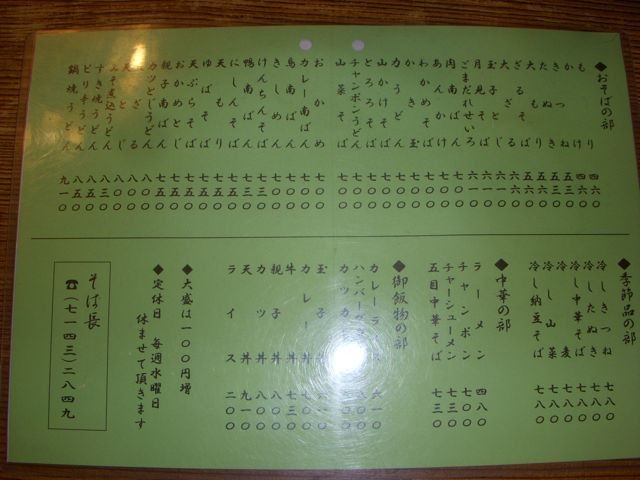 ◆おそばの部
もり 四六〇
かけ 四六〇
きつね 五三〇
たぬき 五三〇
大もり 五六〇
ざる 五六〇
玉子とじ
月見そば
ごまだれせいろ
肉南ばん
あんかけ
わかめそば
力うどん 七〇〇
山かけそば 七〇〇
とろろそば 七〇〇
チャンポンうどん 七〇〇
山菜そば 七〇〇
おかめ 七〇〇
カレー南ばん 七〇〇
鳥南ばん 七〇〇
きしめん 七〇〇
けんちんそば 七三〇
鴨南ばん 七三〇
にしんそば 七五〇
天もり 七五〇
ゆばそば 七五〇
天ぷらそば 七五〇
おかめとじ 七五〇
親子南ばん 七五〇
カツとじうどん 七五〇
天ざる 八〇〇
天とじ 八〇〇
みそ煮込うどん 八〇〇
すき焼うどん 八三〇
ピリ辛うどん 八五〇
鍋焼うどん 九一〇
◆季節品の部
冷しきつね 七八〇
冷したぬき 七八〇
冷し中華そば 七八〇
冷し山菜 七八〇
冷し納豆そば 七八〇
◆中華の部
ラーメン 四八〇
チャンポン 七〇〇
チャーシューメン 七三〇
五目中華そば 七三〇
◆御飯物の部
カレーライス 六一〇
カツカレー
玉子丼 六一〇
カレー丼 七〇〇
牛丼 七三〇
親子丼 七〇〇
カツ丼 八〇〇
天丼 九一〇
ライス 二〇〇
◆大盛は一〇〇円増
◆定休日 毎週水曜日
休ませて頂きます
そば長
☎(七一四三)二八四九